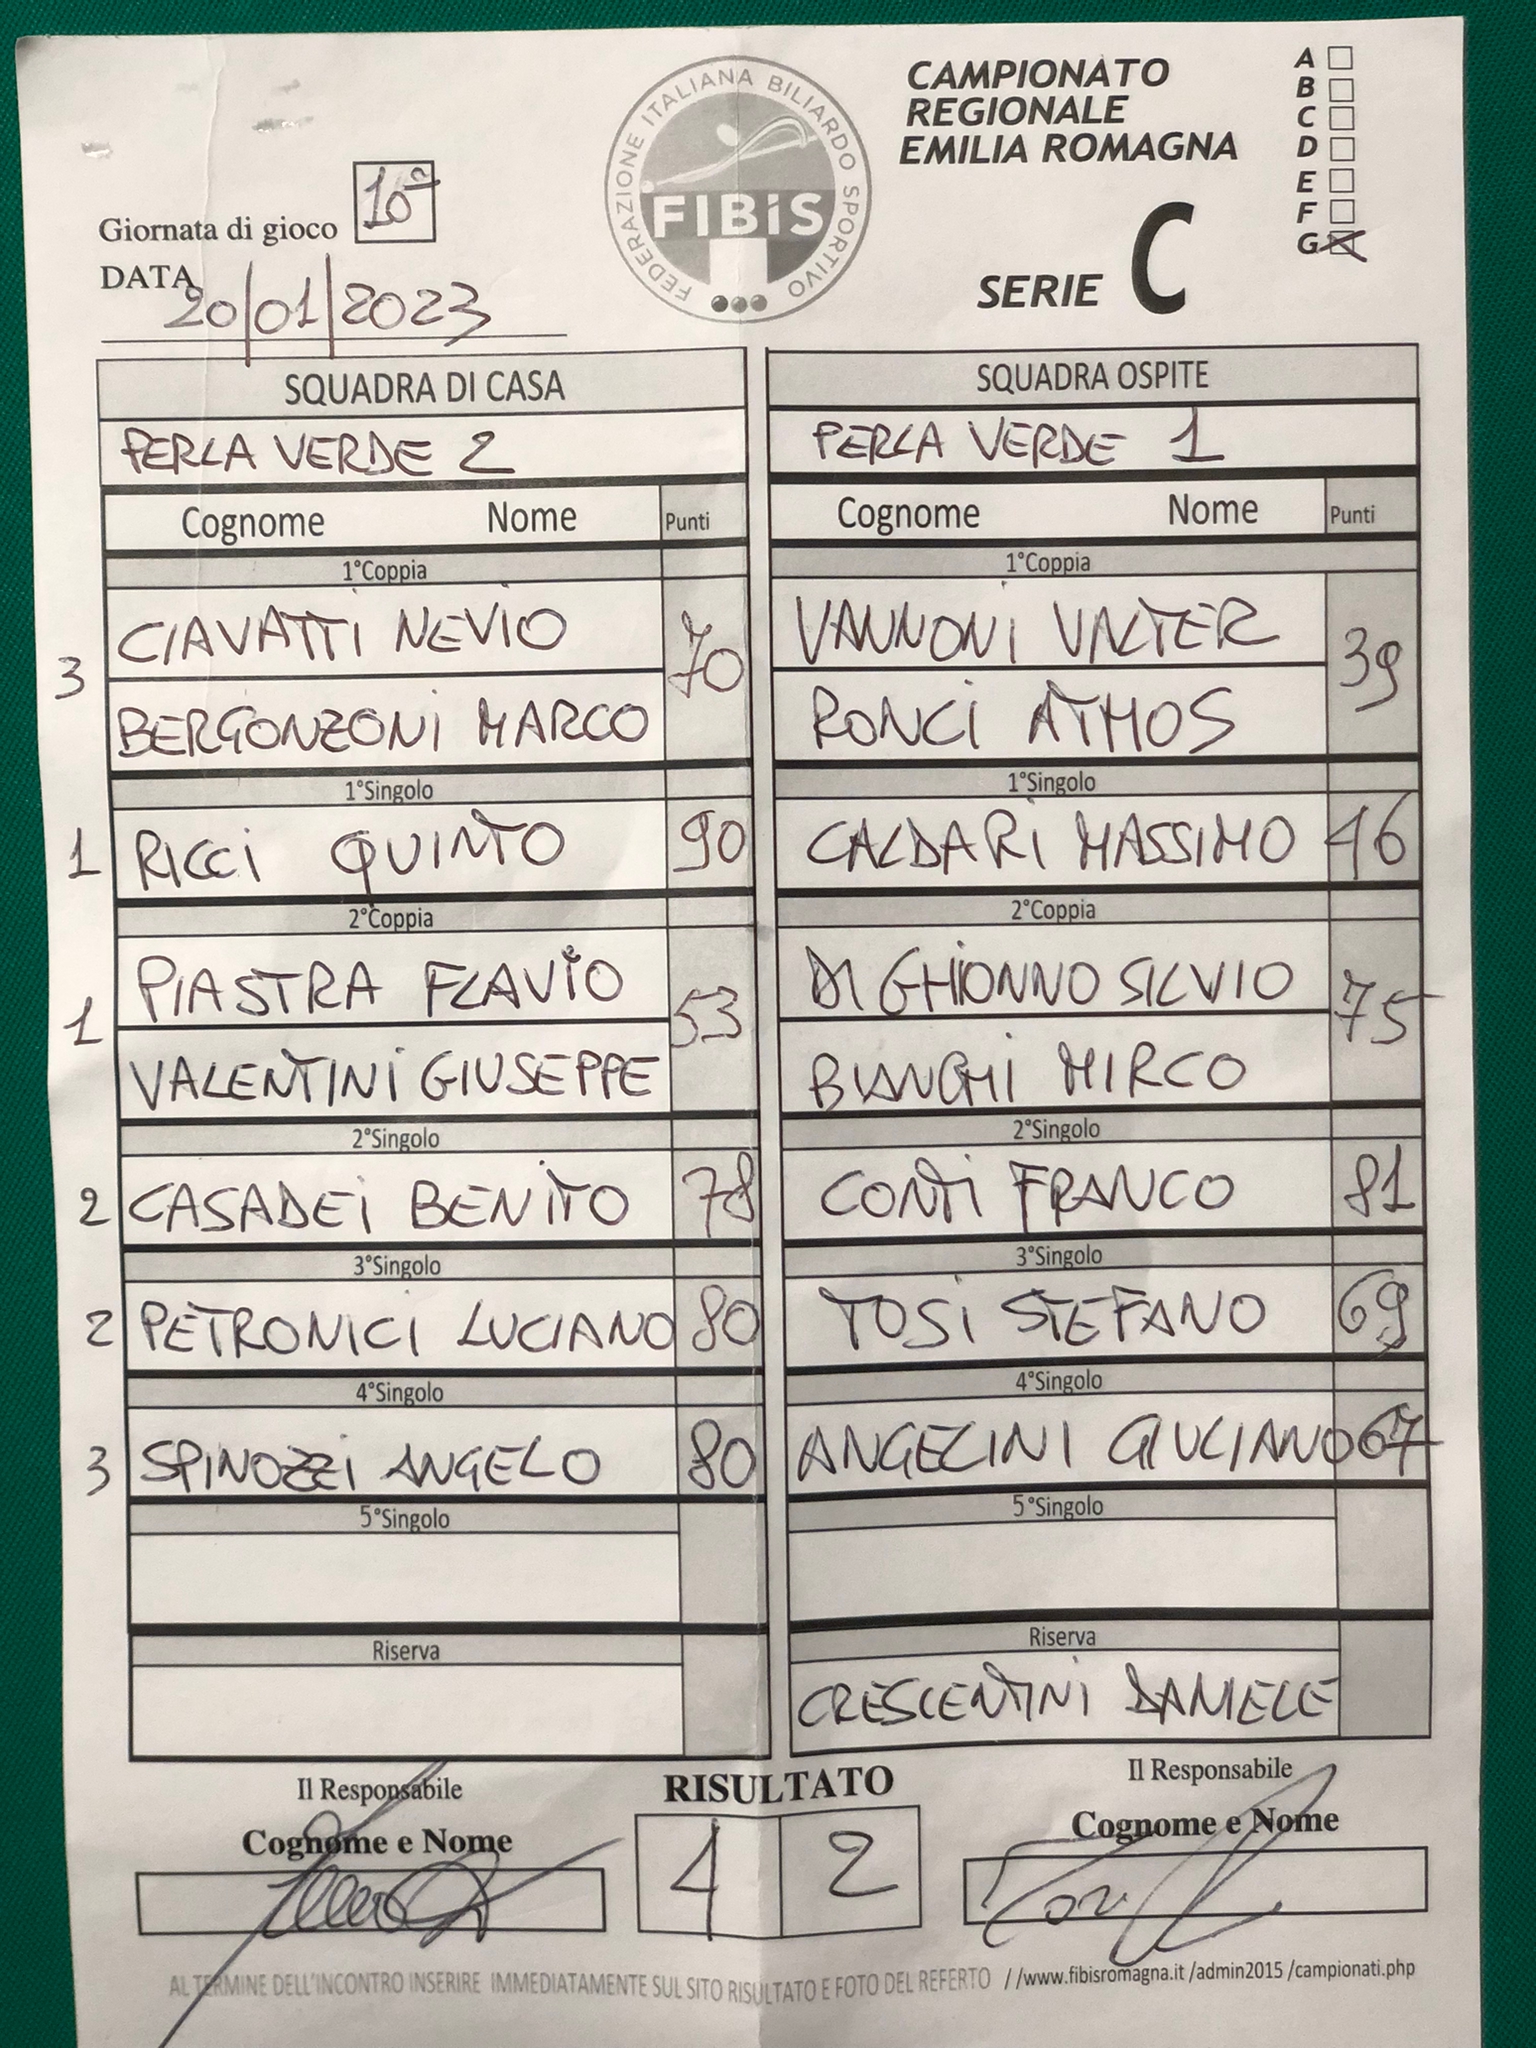 FEDERAZIONE ITALIANA BILIARDO SPORTIVO
FIBiS
CAMPIONATO
REGIONALE
EMILIA ROMAGNA
SERIE C
A
B
C
D
E
F
G
Giornata di gioco 10ª
DATA
20/01/2023
SQUADRA DI CASA
PERLA VERDE 2
Cognome Nome Punti
1°Coppia
CIAVATTI NEVIO
3 70
BERGONZONI MARCO
1°Singolo
1 RICCI QUINTO 90
2°Coppia
PIASTRA FLAVIO
1 53
VALENTINI GIUSEPPE
2°Singolo
2 CASADEI BENITO 78
3°Singolo
2 PETRONICI LUCIANO 80
4°Singolo
3 SPINOZZI ANGELO 80
5°Singolo
Riserva
SQUADRA OSPITE
PERLA VERDE 1
Cognome Nome Punti
1°Coppia
VANNONI VALTER
39
RONCI ATMOS
1°Singolo
CALDARI MASSIMO 46
2°Coppia
DI GHIONNO SILVIO
75
BIANCHI MIRCO
2°Singolo
CONTI FRANCO 81
3°Singolo
TOSI STEFANO 69
4°Singolo
ANGELINI GIULIANO 67
5°Singolo
Riserva
CRESCENTINI DANIELE
Il Responsabile
Cognome e Nome
RISULTATO
4 2
Il Responsabile
Cognome e Nome
AL TERMINE DELL'INCONTRO INSERIRE IMMEDIATAMENTE SUL SITO RISULTATO E FOTO DEL REFERTO //www.fibisromagna.it /admin2015 /campionati.php